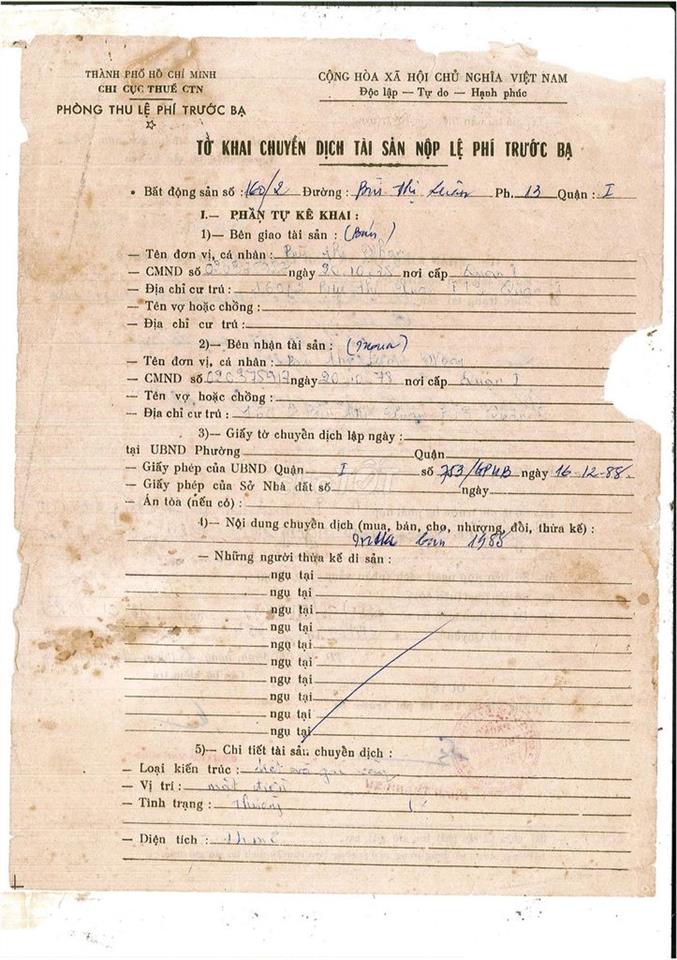 THÀNH PHỐ HỒ CHÍ MINH
CHI CỤC THUẾ CTN
PHÒNG THU LỆ PHÍ TRƯỚC BẠ
CỘNG HÒA XÃ HỘI CHỦ NGHĨA VIỆT NAM
Độc lập — Tự do — Hạnh phúc
TỜ KHAI CHUYỂN DỊCH TÀI SẢN NỘP LỆ PHÍ TRƯỚC BẠ
• Bất động sản số : 160/2 Đường : Bùi Thị Xuân Ph. 13 Quận : I
I.— PHẦN TỰ KÊ KHAI :
1)— Bên giao tài sản : (Bán)
— Tên đơn vị, cá nhân :
— CMND số ngày 20.10.78 nơi cấp Quận I
— Địa chỉ cư trú : 160/2 Bùi Thị Xuân Quận I
— Tên vợ hoặc chồng :
— Địa chỉ cư trú :
2)— Bên nhận tài sản : (mua)
— Tên đơn vị, cá nhân :
— CMND số 020375917 ngày 20.10.78 nơi cấp Quận I
— Tên vợ hoặc chồng :
— Địa chỉ cư trú : 160/2 Bùi Thị Xuân
3)— Giấy tờ chuyển dịch lập ngày :
tại UBND Phường Quận
— Giấy phép của UBND Quận I số 753/GPUB ngày 16-12-88
— Giấy phép của Sở Nhà đất số ngày
— Án tòa (nếu có) :
4)— Nội dung chuyển dịch (mua, bán, cho, nhượng, đổi, thừa kế) :
mua bán 1988
— Những người thừa kế di sản :
ngụ tại
ngụ tại
ngụ tại
ngụ tại
ngụ tại
ngụ tại
ngụ tại
ngụ tại
ngụ tại
ngụ tại
5)— Chi tiết tài sản chuyển dịch :
— Loại kiến trúc :
— Vị trí : mặt tiền
— Tình trạng : Thường
— Diện tích :